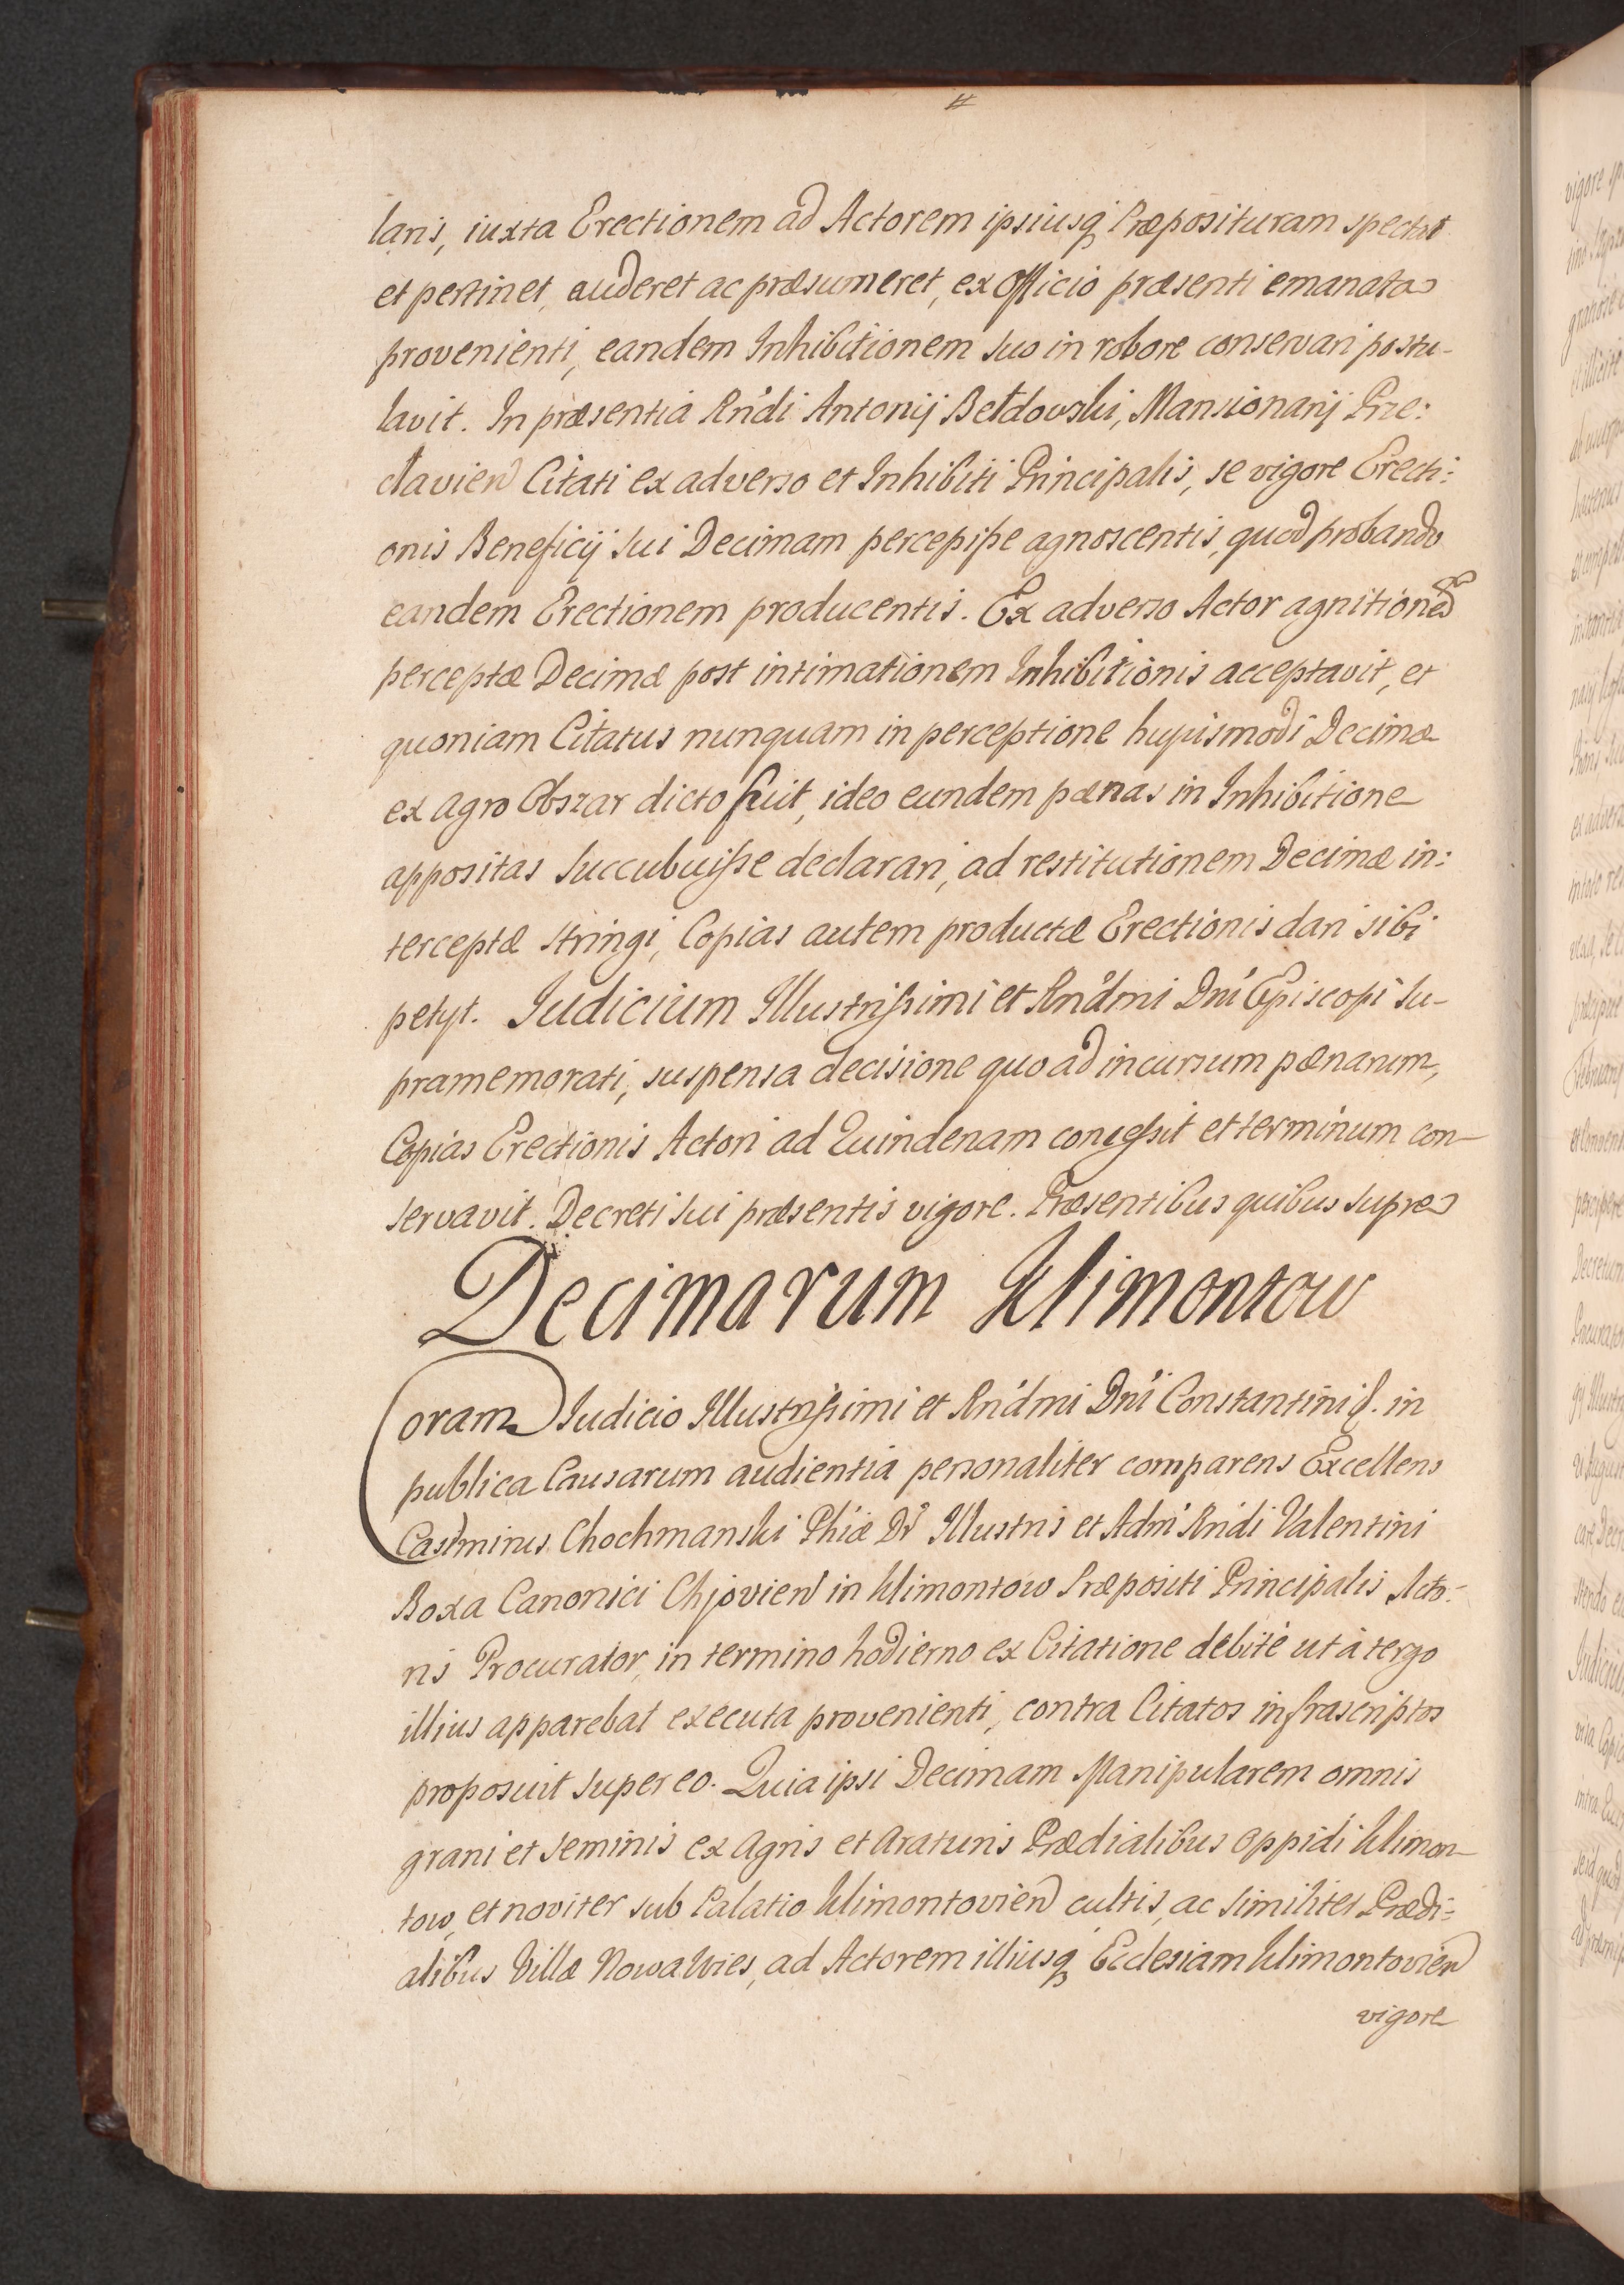 laris, iuxta Erectionem ad Actorem ipsiusq Præposituram spectat
et pertinet, auderet ac præsumeret, ex Officio præsenti emanata
provenienti, eandem Inhibitionem suo in robore conservari postu-
lavit. In præsentia Rńdi Antonij Bełdowski, Mansionarij Prze:
clavien Citati ex adverso et Inhibiti Principalis, se vigore Erecti:
onis Beneficij sui Decimam percepiſse agnoscentis, quod probando
eandem Erectionem producentis. Ex adverso Actor agnitionem
perceptæ Decimæ post intimationem Inhibitionis acceptavit, et
quoniam Citatus nunquam in perceptione hujusmodi Decimæ
ex agro Obszar dicto fuit, ideo eundem pænas in Inhibitione
appositas succubuiſse declarari, ad restitutionem Decimæ in:
terceptæ stringi, Copias autem productæ Erectionis dari sibi
petyt. Iudicium Illustriſsimi et Rńdmi Dńi Episcopi su-
pramemorati, suspensa decisione quo ad incursum pænarum,
Copias Erectionis Actori ad Quindenam conceſsit et terminum con-
servavit. Decreti sui præsentis vigore. Præsentibus quibus supra
Decimarum Klimontow
Coram Iudicio Illustriſsimi et Rńdmi Dńi Constantini in
publica Causarum audientia personaliter comparens Excellens
Casimirus Chochmanski Phiæ Dr Illustris et Adm Rńdi Valentini
Boxa Canonici Chjovien in Klimontow Præpositi Principalis Acto:
ris Procurator, in termino hodierno ex Citatione debitè ut à tergo
illius apparebat executa provenienti, contra Citatos infrascriptos
proposuit super eo. Quia ipsi Decimam Manipularem omnis
grani et seminis ex Agris et Araturis Prædialibus oppidi Klimon-
tow, et noviter sub Palatio Klimontovien cultis, ac similiter Prædi:
alibus Villæ Nowawies, ad Actorem illiusq Ecclesiam Klimontovien
vigore